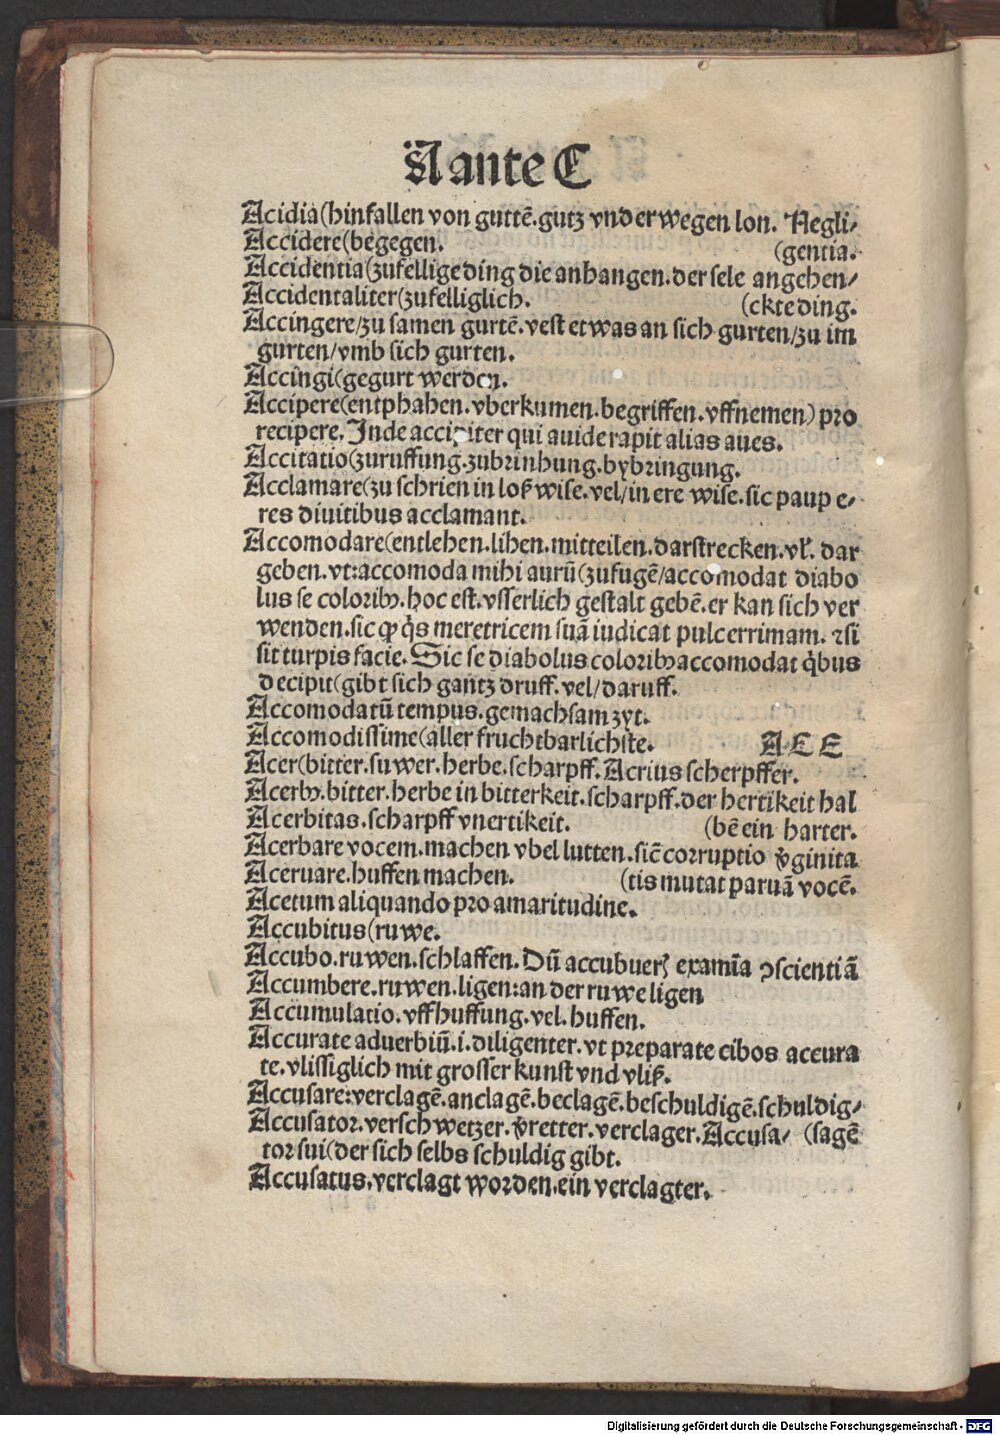 A ante C
Acidia(hinfallen von guttē.gutz vnderwegen lon. Negli⸗
Accidere(begegen. (gentia.
Accidentia(zufellige ding die anhangen.der sele angehen⸗
Accidentaliter(zufelliglich. (ckte ding.
Accingere/zu samen gurtē.vest etwas an sich gurten/zu im
gurten/vmb sich gurten.
Accingi(gegurt werden.
Accipere(entphahen.vberkumen.begriffen.vffnemen) pro
recipere. Inde accipiter qui auide rapit alias aues.
Accitatio(zuruffung.zubrinhung.bybringung.
Acclamare(zu schrien in loß wise.vel/in ere wise.sic paupe⸗
res diuitibus acclamant.
Accomodare(entlehen.lihen.mitteilen.darstrecken.vl'. dar
geben.vt:accomoda mihi aurū(zufugē/accomodat diabo
lus se coloribꝰ.hoc est.vsserlich gestalt gebē.er kan sich ver
wenden.sic ꝙ q̇s meretricem suā iudicat pulcerrimam. ⁊si
sit turpis facie. Sic se diabolus coloribꝰ accomodat q̇bus
decipit(gibt sich gantz druff.vel/daruff.
Accomodatū tempus.gemachsam zyt.
Accomodissime(aller fruchtbarlichste. A C E
Acer(bitter.suwer.herbe.scharpff.Acrius scherpffer.
Acerbꝰ.bitter.herbe in bitterkeit.scharpff.der hertikeit hal
Acerbitas.scharpff vnertikeit. (bē ein harter.
Acerbare vocem.machen vbel lutten.sic̄ corruptio v̄ginita
Aceruare.huffen machen. (tis mutat paruā vocē.
Acetum aliquando pro amaritudine.
Accubitus(ruwe.
Accubo.ruwen.schlaffen. Dū accubuerꝭ exami̅a ꝯscientiā
Accumbere.ruwen.ligen:an der ruwe ligen
Accumulatio.vffhuffung.vel.huffen.
Accurate aduerbiū.i.diligenter.vt preparate cibos accura
te.vlissiglich mit grosser kunst vnd vliß.
Accusare:verclagē.anclagē.beclagē.beschuldigē.schuldig⸗
Accusator.verschwetzer.v̄retter.verclager.Accusa⸗ (sagē
tor sui(der sich selbs schuldig gibt.
Accusatus.verclagt worden.ein verclagter.
Digitalisierung gefördert durch die Deutsche Forschungsgemeinschaft - DFG